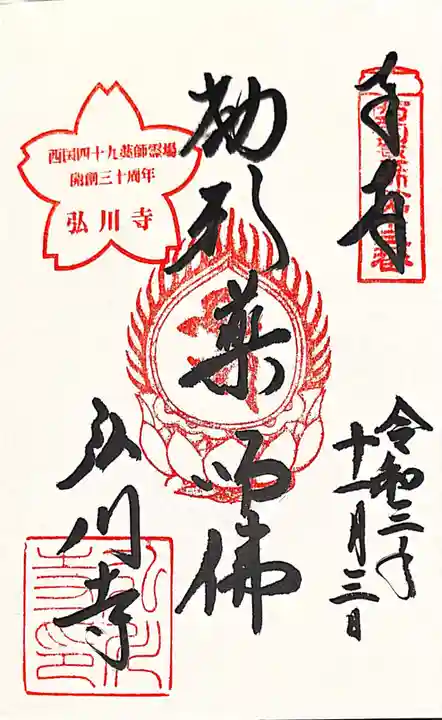 奉拝
令和三年
十一月三日
勅刑薬師佛
弘川寺
西国四十九薬師霊場
開創三十周年
弘川寺